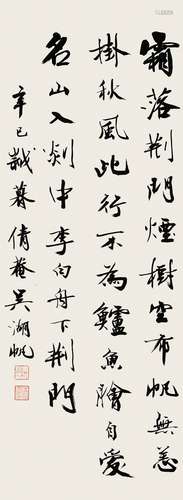 霜落荆門煙樹空布帆無恙
掛秋風此行不為鱸魚鱠自愛
名山入剡中李白舟下荆門
辛巳歲暮倩菴吳湖帆